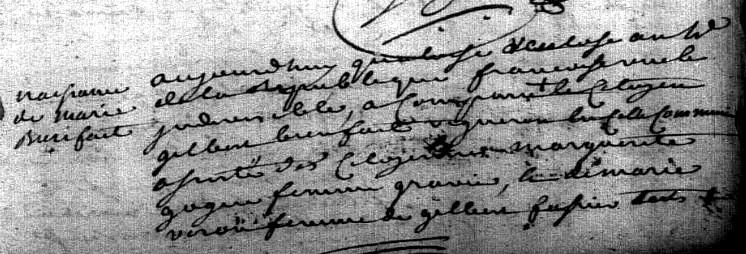 naissance
de marie
Bienfait
aujourdhuy quatorze ventose an 7e
de la republique francoise une et
indivisible, a comparu le Citoyen
gilbert bienfait vigneron en cette Commune
assisté des Citoyennes marguerite
gogue femme gravier, et de marie
femme de gilbert